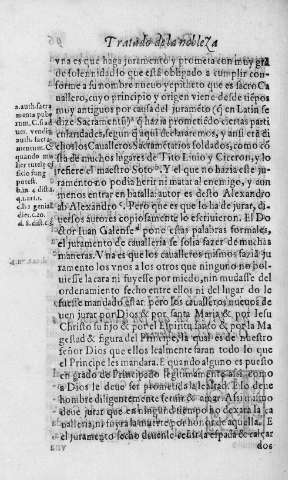 Tratado de la nobleza
vna es que haga juramento y prometa con muy grã
de solennidad lo que está obligado a cumplir confor-
forme a su nombre nuevo y epitheto que es sacro Ca
uallero, cuyo principio y origen viene desde tiẽpos
muy antiguos por causa del juramẽto (q̃ en Latin se
dize Sacramento) q̃ hazia prometiẽdo ciertas parti
cularidades, segun q̃ aqui declararemos, y ansi erã di
chos los Caualleros Sacrametarios soldados, como cõ
sta de muchos lugares de Tito Liuio y Ciceron, y lo
refiere el maestro Soto. Y el que no hazia este jura
mento no podia herir ni matar al enemigo, y con
menos entrar en batalla: autor es desto Alexandro
ab Alexandro. Pero que es que lo ha de jurar, di
uersos autores copiosamente lo escriuieron. El Do
ctor Iuan Galense pone estas palabras formales,
el juramento de caualleria se solia fazer de muchas
maneras. Vna es que los caualleros mismos faziã ju
ramento los vnos a los otros que ninguno no bol-
uiesse la cara ni fuyesse por miedo, nin mudasse del
ordenamiento fecho entre ellos ni del lugar do le
fuesse mandado estar pero los caualleros nueuos de
uen jurar por Dios & por santa Maria & por Iesu
Christo su fijo & por el Espiritu santo & por la Ma
gestad & figura del Principe, la qual es de nuestro
señor Dios que ellos lealmente faran todo lo que
el Principe les mandara. E quando alguno es puesto
en grado de Principado legitimamente assi como
a Dios le deue ser prometida la lealtad. E lo deue
hombre diligentemente seruir & amar. Assi mismo
deue jurar que en ningun tiempo no dexara la ca
ualleria, ni fuyra la muerte por honor de aquella. E
el juramento fecho deuenle ceñir la espada & calçar
dos